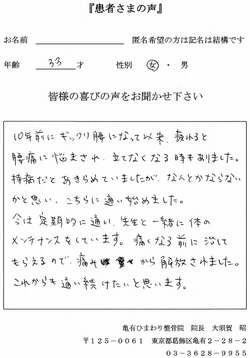 『患者さまの声』
お名前 匿名希望の方は記名は結構です
年齢 33 才 性別 女・男
皆様の喜びの声をお聞かせ下さい
10年前にギックリ腰になって以来、疲れると
腰痛に悩まされ、立てなくなる時もありました。
持病だとあきらめていましたが、なんとかならない
かと思い、こちらに通い始めました。
今は定期的に通い、先生と一緒に体の
メンテナンスをしています。痛くなる前に治して
もらえるので、痛み から解放されました。
これからも通い続けたいと思います。
亀有ひまわり整骨院 院長 大須賀 昭
〒125-0061 東京都葛飾区亀有2-28-2
03-3628-9955